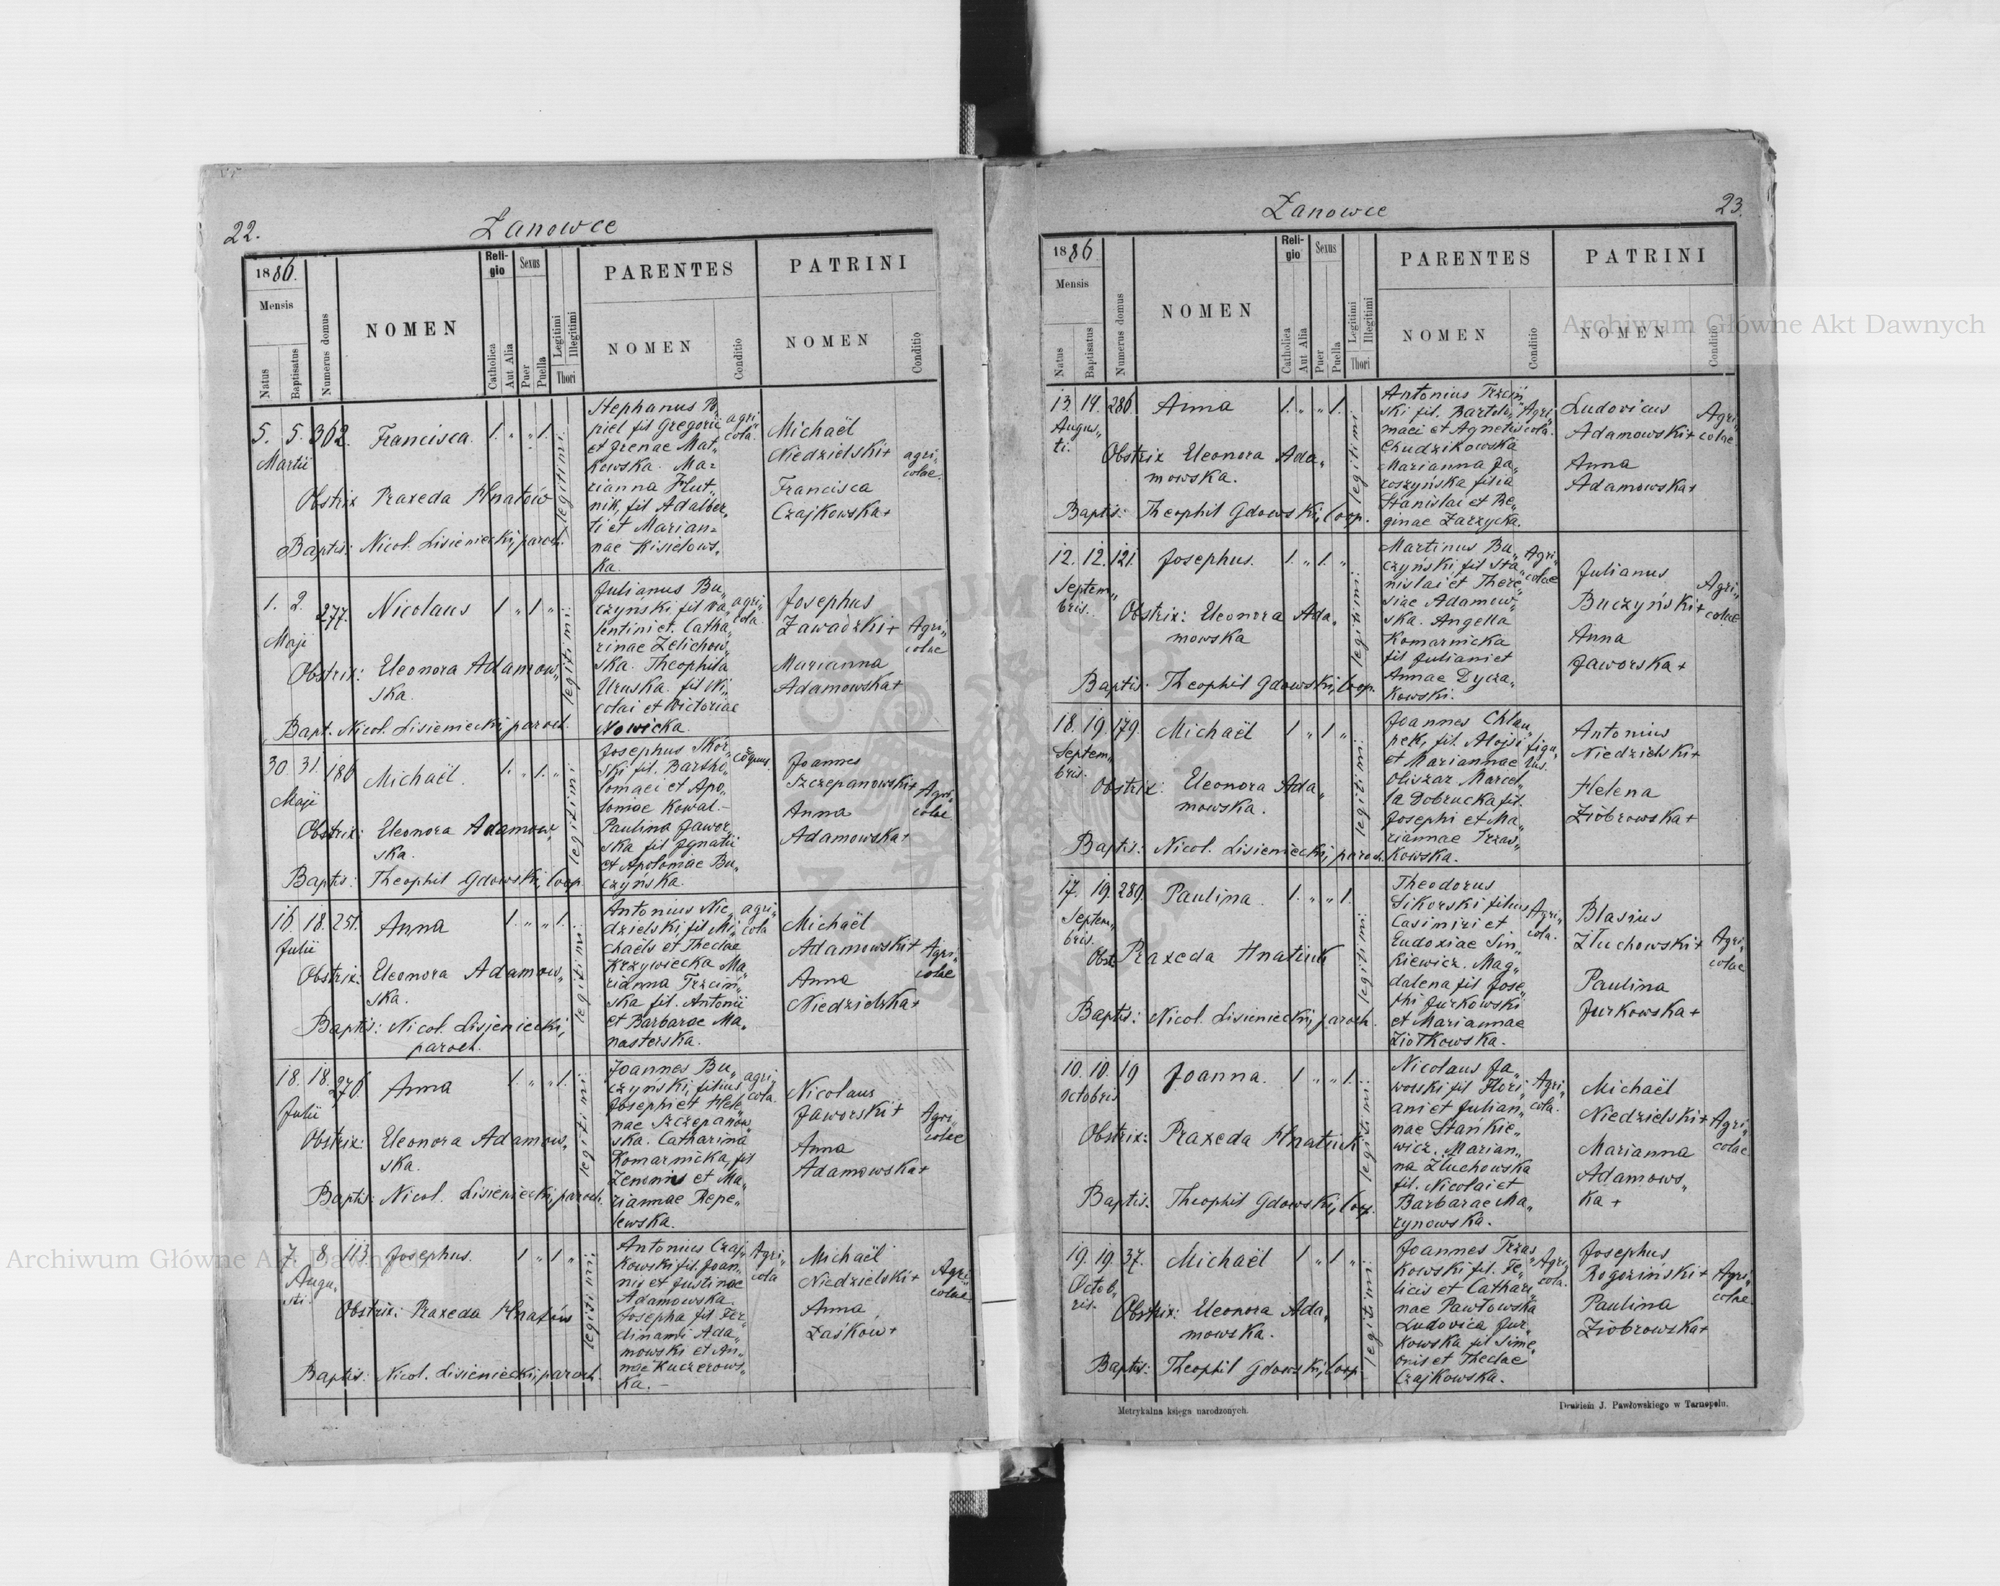 22.
Łanowce
1886.
Mensis
Natus
Baptisatus
Numerus domus
NOMEN
Religio
Catholica
Aut Alia
Sexus
Puer
Puella
Legitimi
Illegitimi
Thori
PARENTES
NOMEN
Conditio
PATRINI
NOMEN
Conditio
5. 5. 302. Francisca. 1. " " 1.
Martii
Obstrix Praxeda Hnatów
Baptis: Nicol. Lisieniecki, paroch.
legitimi
Stephanus Po„
piel fil Gregorii
et Irenae Mat„
kowska. Ma=
rianna Hut„
nik, fil Adalber„
ti et Marian=
nae Kisielows„
ka.
agri„
cola.
Michaël
Niedzielski+
Francisca
Czajkowska+
agri„
colae.
1. 2. 277. Nicolaus 1 " 1 "
Maji
Obstrix: Eleonora Adamow„
ska.
Bapt. Nicol. Lisieniecki, paroch.
legitimi
Julianus Bu„
czynski, fil Va„
lentini et Catha„
rinae Zelichow„
ska. Theophila
Uruska. fil Ni„
colai et Victoriae
Nowicka.
agri„
cola.
Josephus
Zawadzki+
Marianna
Adamowska+
Agri„
colae
30. 31. 186 Michaël. 1. " 1. "
Maji
Obstrix: Eleonora Adamow„
ska.
Baptis: Theophil Gdowski, Coop.
legitimi
Josephus Skór„
ski fil. Bartho„
lomaei et Apo„
loniae Kowal.–
Paulina Jawor„
ska fil Ignatii
et Apoloniae Bu„
czyńska.
Joannes
Szczepanowski+
Anna
Adamowska+
Agri„
colae
16. 18. 251. Anna 1. " " 1.
Julii
Obstrix: Eleonora Adamow„
ska.
Baptis: Nicol. Lisjeniecki,
paroch.
legitimi
Antonius Nie„
dzielski, fil Mi„
chaëls et Theclae
Krzywiecka Ma„
rianna Trzciń„
ska fil. Antonii
et Barbarae Ma„
nasterska.
agri„
cola
Michaël
Adamowski+
Anna
Niedzielska+
Agri„
colae
18. 18. 276. Anna 1. " " 1.
Julii
Obstrix: Eleonora Adamow„
ska.
Baptis: Nicol. Lisieniecki, paroch.
legitimi
Joannes Bu„
czyński, filius
Josephi et Hele„
nae Szczepanow„
ska. Catharina
Komarnicka, fil
Zenonis et Ma„
riannae Repe„
lewska.
agri„
cola.
Nicolaus
Jaworski+
Anna
Adamowska+
Agri„
colae
7. 8. 113. Josephus. 1 " 1 "
Augu„
sti.
Obstrix: Praxeda Hnatów
Baptis: Nicol. Lisieniecki, paroch.
legitimi
Antonius Czaj„
kowski fil. Joan„
nis et Justinae
Adamowska
Josepha fil Fer„
dinandi Ada„
mowski et An„
nae Kuczerows„
ka.–
Agri„
cola
Michaël
Niedzielski+
Anna
Łaśków+
Agri„
colae
23.
Łanowce
1886
Mensis
Natus
Baptisatus
Numerus domus
NOMEN
Religio
Catholica
Aut Alia
Sexus
Puer
Puella
Legitimi
Illegitimi
Thori
PARENTES
NOMEN
Conditio
PATRINI
NOMEN
Conditio
13. 14. 286. Anna 1. " " 1.
Augus„
ti.
Obstrix Eleonora Ada„
mowska.
Baptis: Theophil Gdowski, Coop.
legitimi
Antonius Trzciń„
ski fil. Bartolo„
maei et Agnetis
Chudzikowska
Marianna Ja„
roszyńska filia
Stanislai et Re„
ginae Zarzycka.
Agri„
cola.
Ludovicus
Adamowski+
Anna
Adamowska+
Agri„
colae
12. 12. 121. Josephus. 1 " 1. "
Septem„
bris.
Obstrix: Eleonora Ada„
mowska
Baptis: Theophil Gdowski, Coop.
legitimi
Martinus Bu„
czyński, fil Sta„
nislai et There„
siae Adamow„
ska. Angella
Komarnicka
fil Juliani et
Annae Dycza„
kowski.
Agri„
colae
Julianus
Buczyński+
Anna
Jaworska+
Agri„
colae
18. 19. 179. Michaël 1 " 1 "
Septem„
bris.
Obstrix: Eleonora Ada„
mowska.
Baptis: Nicol. Lisieniecki, paroch.
legitimi
Joannes Chlau„
pek, fil. Alojsi
et Mariannae
Obiszar Marcel„
la Dobrucka fil.
Josephi et Ma„
riannae Trzas„
kowska.
figu„
lus.
Antonius
Niedzielski+
Helena
Ziobrowska+
17. 19. 289. Paulina. 1. " " 1.
Septem„
bris.
Obst Praxeda Hnatiuk
Baptis: Nicol. Lisieniecki, paroch.
legitimi
Theodorus
Sikorski filius
Casimiri et
Eudoxiae Sin„
kiewicz. Mag„
dalena fil Jose„
phi Jurkowski
et Mariannae
Ziółkowska.
Agri„
cola.
Blasius
Złuchowski+
Paulina
Jurkowska+
Agri„
colae
10. 10. 19 Joanna. 1 " " 1.
Octobris
Obstrix: Praxeda Hnatiuk
Baptis: Theophil Gdowski, Coop.
legitimi
Nicolaus Ja„
worski fil Flori„
ani et Julian„
nae Stańkie„
wicz. Marian„
na Złuchowska
fil. Nicolai et
Barbarae Ma„
zynowska.
Agri„
cola.
Michaël
Niedzielski+
Marianna
Adamows„
ka+
Agri„
colae
19. 19. 37. Michaël 1 " 1 "
Octob„
ris.
Obstrix: Eleonora Ada„
mowska.
Baptis: Theophil Gdowski, Coop
legitimi
Joannes Trzas„
kowski fil. Fe„
licis et Cathari„
nae Pawłowska
Ludovica Jur„
kowska fil Sime„
onis et Theclae
Czajkowska.
Agri„
cola.
Josephus
Rogoziński+
Paulina
Ziobrowska+
Agri„
colae
Metrykalna księga narodzonych.
Drukiem J. Pawłowskiego w Tarnopolu.
Archiwum Główne Akt Dawnych
Archiwum Główne Akt Dawnych